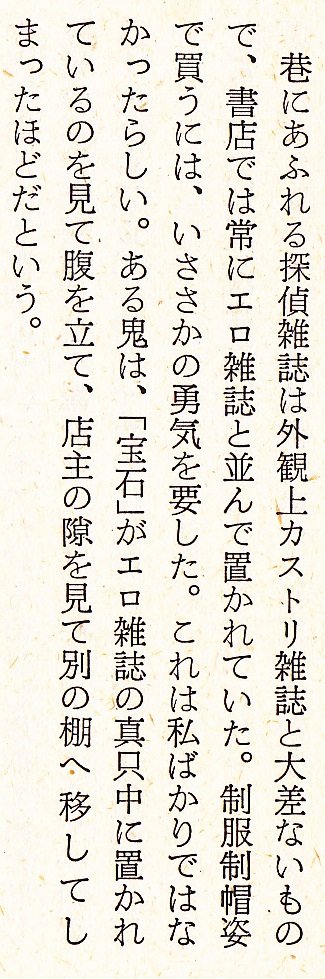 巷にあふれる探偵雑誌は外観上カストリ雑誌と大差ないもの
で、書店では常にエロ雑誌と並んで置かれていた。制服制帽姿
で買うには、いささかの勇気を要した。これは私ばかりではな
かったらしい。ある鬼は、「宝石」がエロ雑誌の真只中に置かれ
ているのを見て腹を立て、店主の隙を見て別の棚へ移してし
まったほどだという。